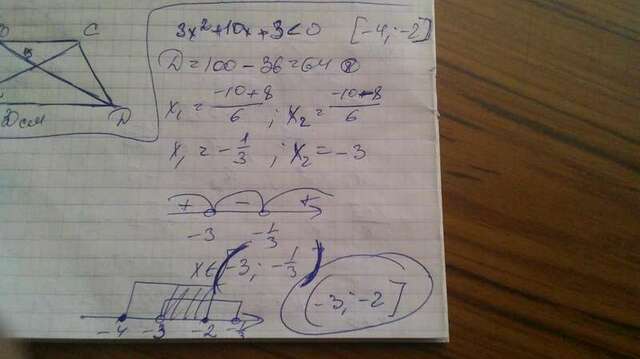 C
D
3x²+10x+3<0 [-4; -2]
D=100-36=64
x₁ = (-10+8)/6 ; x₂ = (-10-8)/6
x₁ = -1/3 ; x₂ = -3
+ - +
-3 -1/3
x∈(-3; -1/3)
(-3; -2]
-4 -3 -2